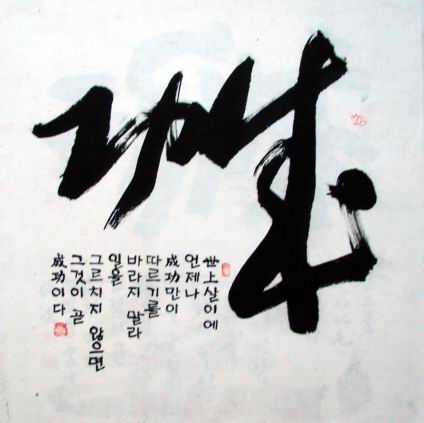 成功
世上살이에
언제나
成功만이
따르기를
바라지 말라
일을
그르치지 않으면
그것이 곧
成功이다